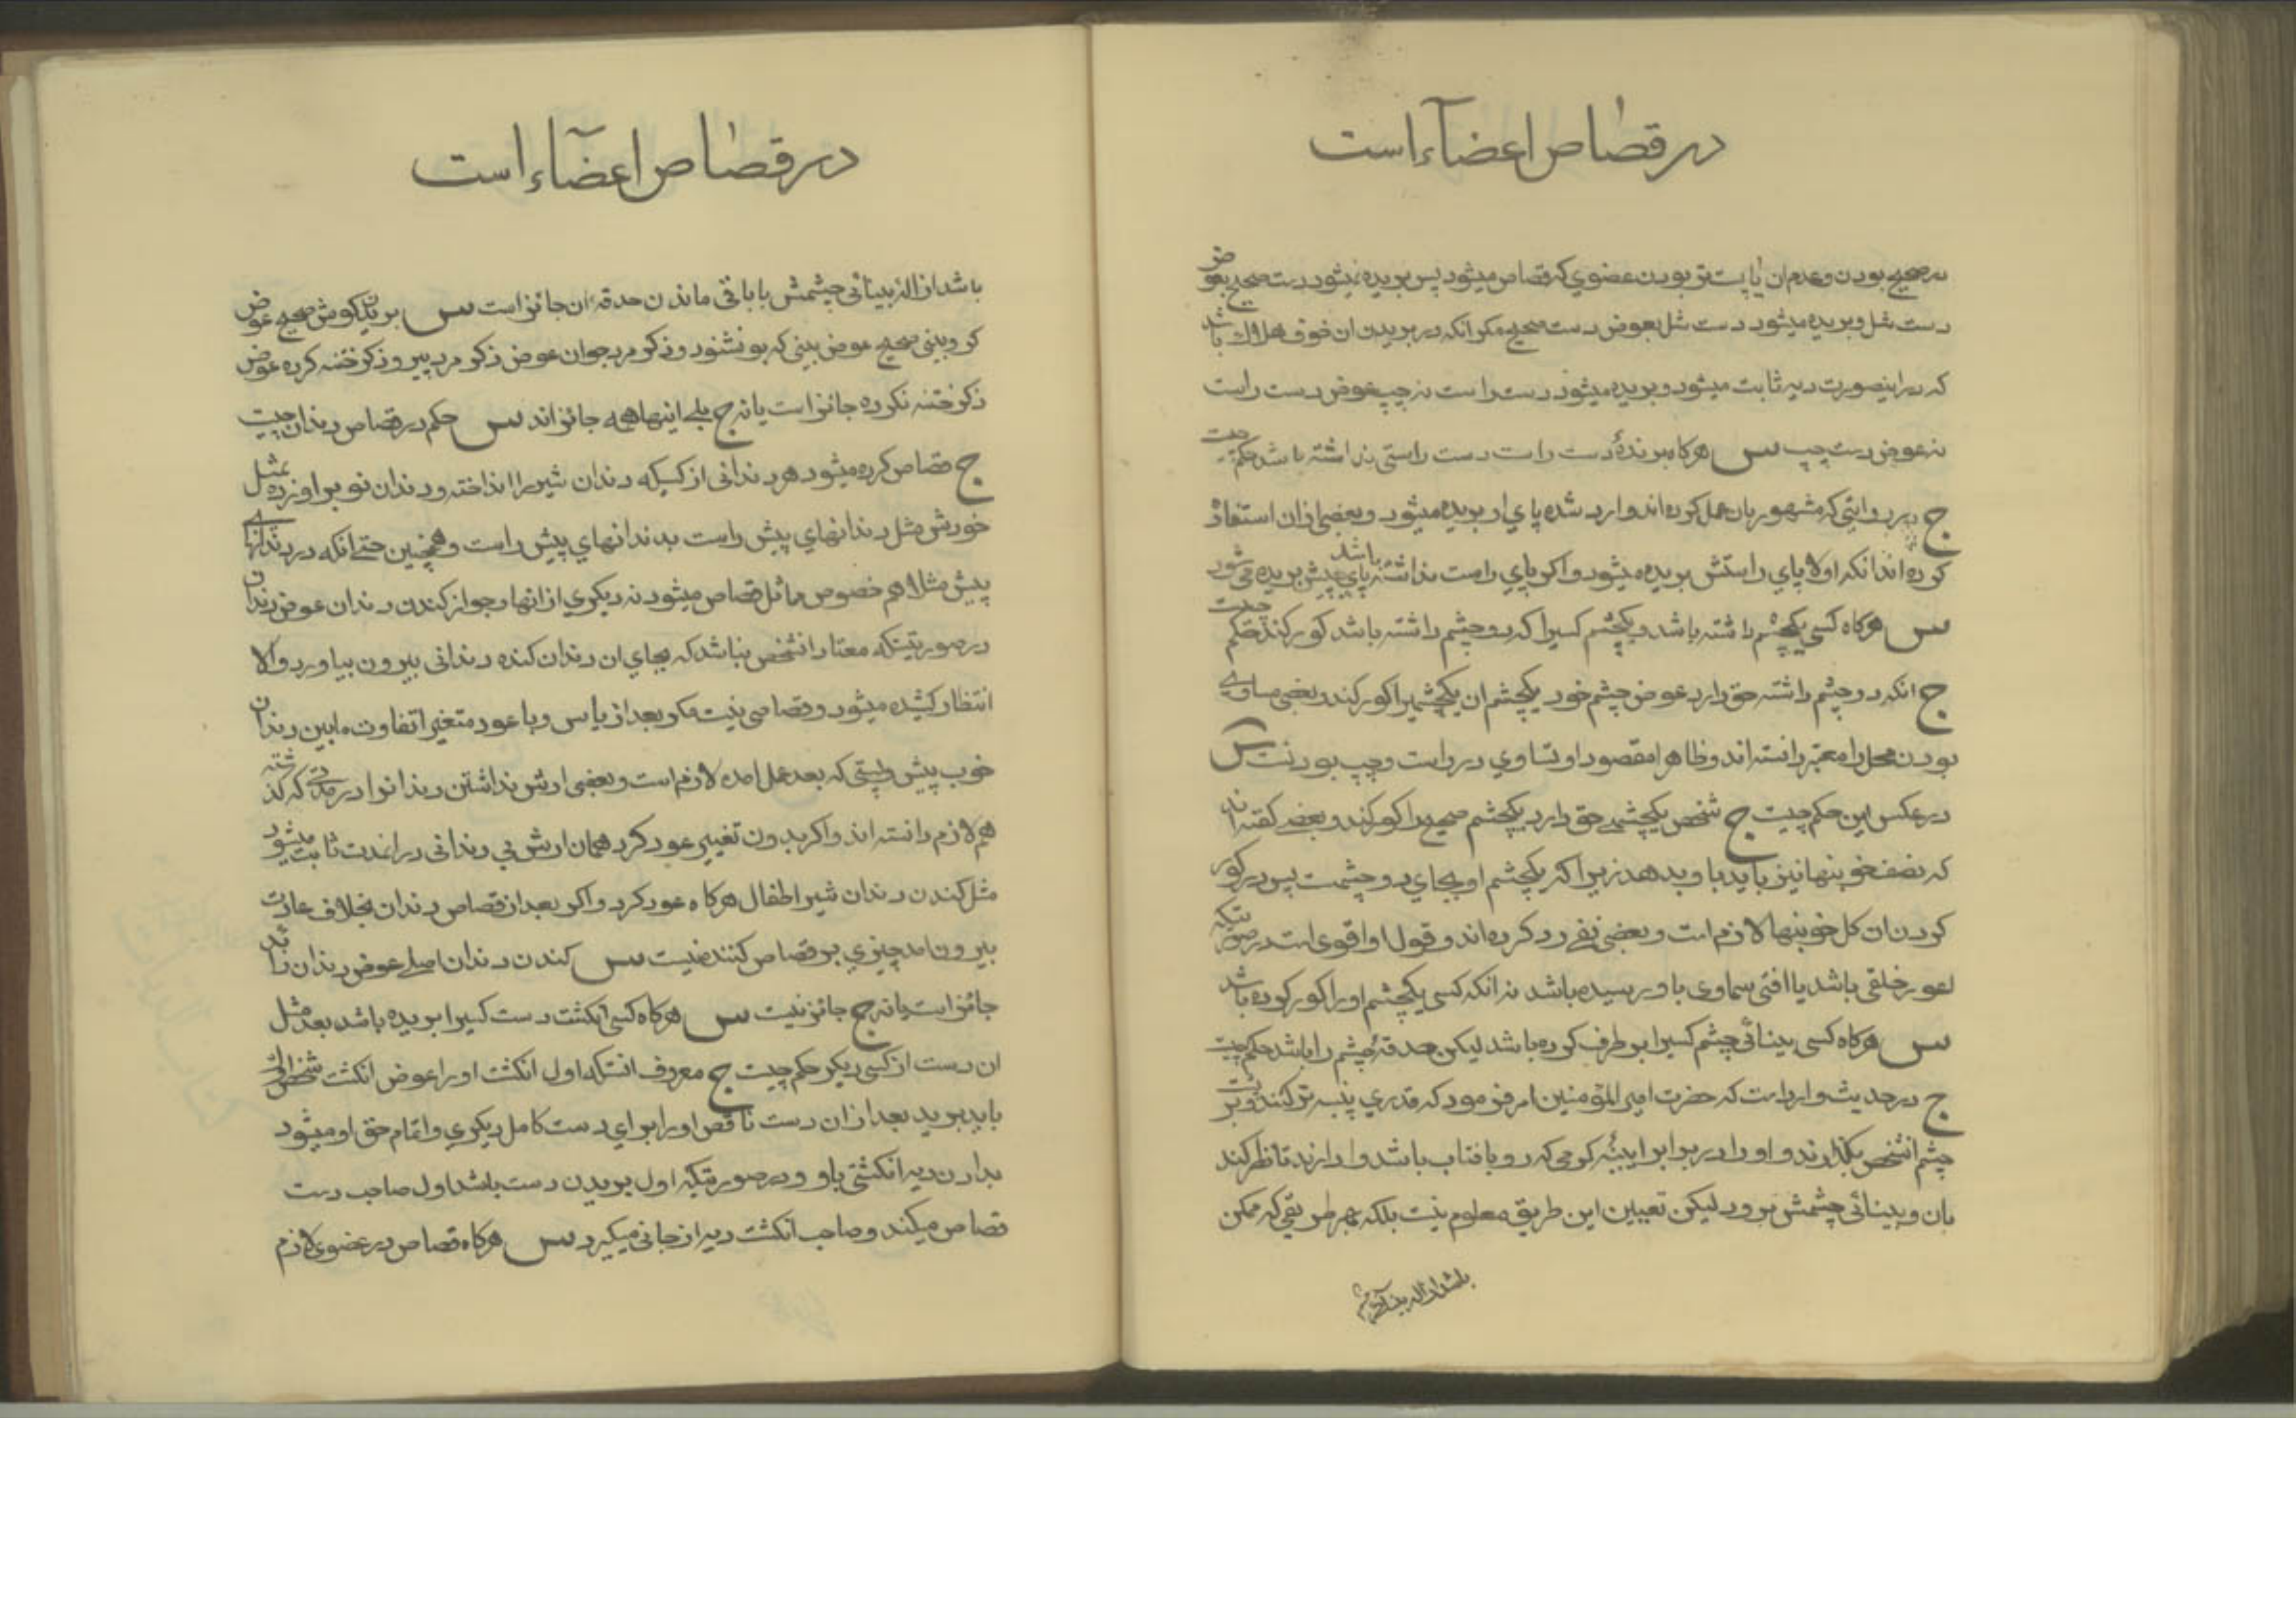 در قصاص اعضاء است
در صحیح بودن و عدم ان یا پست تر بودن عضوي که قصاص میشود پس بریده نمیشود دست صحیح بعوض
دست شل و بریده میشود دست شل بعوض دست صحیح مکر انکه در بریدن ان خوف هلاك باشد
که در اینصورت دیه ثابت میشود و بریده میشود دست راست نه چپ عوض دست راست
نه عوض دست چپ س هرکاه برندهٔ دست راست دست راستی نداشته باشد حکم چیست
ج در روایتی که مشهور بان عمل کرده اند وارد شده پاي او بریده میشود و بعضی ازان استفاده
کرده اند انکه اولا پاي راستش بریده میشود و اکر پاي راست نداشته باشد پاي چپش بریده می شود
س هرکاه کسی یکچشم داشته باشد و یکچشم کسیرا که دو چشم داشته باشد کور کند حکم چیست
ج انکه دو چشم داشته حق دارد عوض چشم خود یکچشم ان یکچشمیرا کور کند و بعضی مساوي
بودن محل را معتبر دانسته اند و ظاهرا مقصود او تساوي در راست و چپ بودنست س
در عکس این حکم چیست ج شخص یکچشمے حق دارد یکچشم صحیح را کور کند و بعضے کفته اند
که نصف خونبها نیز باید باو بدهد زیرا که یکچشم او بجاي دو چشمست پس در کور
کردن ان کل خونبها لازم است و بعضی نفے رد کرده اند و قول او اقوی است در صورتیکه
اعور خلقی باشد یا افتی سماوی باو رسیده باشد نه انکه کسی یکچشم او را کور کرده باشد
س هرکاه کسی بینائی چشم کسیرا بر طرف کرده باشد لیکن حدقهٔ چشم را باشد حکم چیست
ج در حدیث وارد است که حضرت امیر المؤمنین امر فرمود که قدري پنبه تر کنند و بر پشت
چشم انشخص بکذارند و او را در برابر ایینهٔ کرمی که رو بافتاب باشد وا دارند تا نظر کند
بان و بینائی چشمش برود لیکن تعیین این طریق معلوم نیست بلکه بهر طریقی که ممکن
باشد ازاله بینائی چشمش
در قصاص اعضاء است
باشد ازالهٔ بینائی چشمش با باقی ماندن حدقهٔ ان جائز است س بریدن کوش صحیح عوض
کر و بینی صحیح عوض بینی که بو نشنود و ذکر مرد جوان عوض ذکر مرد پیر و ذکر ختنه کرده عوض
ذکر ختنه نکرده جائز است یا نه ج بلے اینها همه جائز اند س حکم در قصاص دندان چیست
ج قصاص کرده میشود هر دندانی از کسیکه دندان شیر را انداخته و دندان نو بر اورده بمثل
خودش مثل دندانهاي پیش راست بدندانهاي پیش راست و همچنین حتے انکه در دندانهاے
پیش مثلا هم خصوص مماثل قصاص میشود نه دیکري از انها و جواز کندن دندان عوض دندان
در صورتیستکه معتاد انشخص نباشد که بجاي ان دندان کنده دندانی بیرون بیاورد والا
انتظار کشیده میشود و قصاصی نیست مکر بعد از یاس و با عود متغیرا تفاوت مابین دندان
خوب پیش و پستی که بعد عمل امده لازم است و بعضی ارش نداشتن دندانرا در مدتے که کذشته
هم لازم دانسته اند و اکر بدون تغییر عود کرد همان ارش بی دندانی در اندت ثابت میشود
مثل کندن دندان شیر اطفال هرکاه عود کرد و اکر بعد از قصاص دندان بخلاف عادت
بیرون امد چیزي بر قصاص کننده نیست س کندن دندان اصلے عوض دندان زائد
جائز است یا نه ج جائز نیست س هرکاه کسی انکشت دست کسیرا بریده باشد بعد مثل
ان دست از کسی دیکر حکم چیست ج معروف انستکه اول انکشت او را عوض انکشت شخص اول
باید برید بعد ازان دست ناقص او را براي دست کامل دیکري و اتمام حق او میشود
بدادن دیه انکشتی باو و در صورتیکه اول بریدن دست باشد اول صاحب دست
قصاص میکند و صاحب انکشت دیه از جانی میکیرد س هرکاه قصاص در عضوي لازم